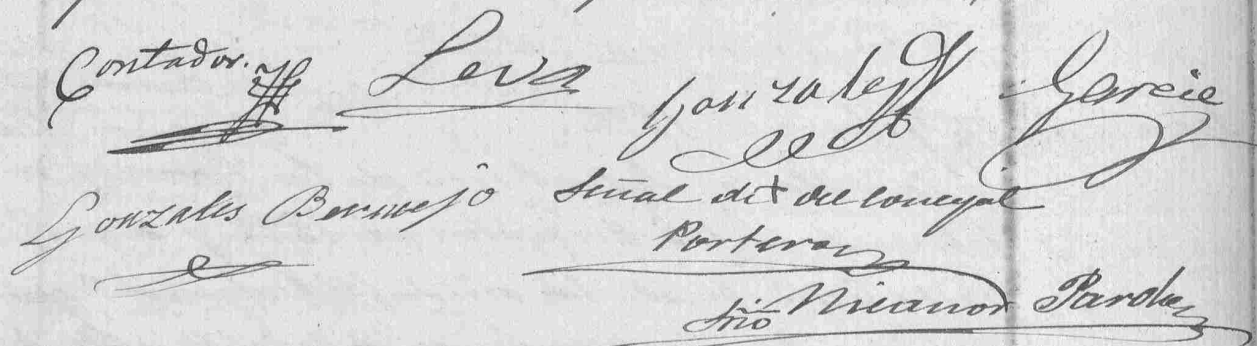 Contador. Leva Gonzalez Garcia
Gonzales Bermejo Señal de + del concejal
Portero
Srio Nicanor Pardo